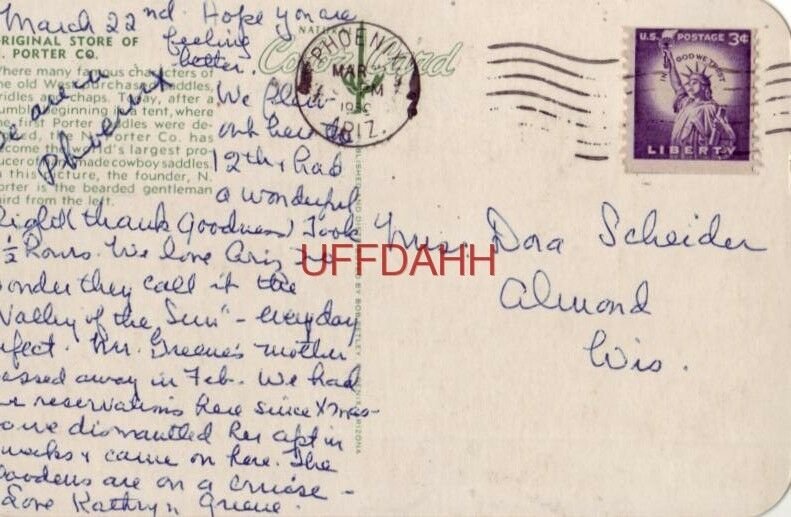 March 22nd. Hope you are
feeling
better.
We flew
out here the
12th & had
a wonderful
flight (thank Goodness) Took
½ hours. We love Ariz no
wonder they call it the
Valley of the Sun" - everyday
perfect. Mr. Greene's mother
passed away in Feb. We had
our reservations here since Xmas-
so we dismantled her apt in
weeks & came on here. The
Goodens are on a cruise -
Love Kathryn Greene.
Phoenix
ORIGINAL STORE OF
N. PORTER CO.
Where many famous characters of
the old West purchased saddles,
bridles and chaps. Today, after a
humble beginning in a tent, where
the first Porter saddles were de-
signed, the N. Porter Co. has
become the world's largest pro-
ducer of handmade cowboy saddles.
In this picture, the founder, N.
Porter is the bearded gentleman
third from the left.
NATURAL
Color Card
PHOENIX
MAR
PM
ARIZ.
U.S. POSTAGE 3¢
IN GOD WE TRUST
LIBERTY
PUBLISHED AND DISTRIBUTED BY BOB PETLEY, PHOENIX, ARIZONA
Mrs. Dora Scheider
Almond
Wis.
UFFDAHH